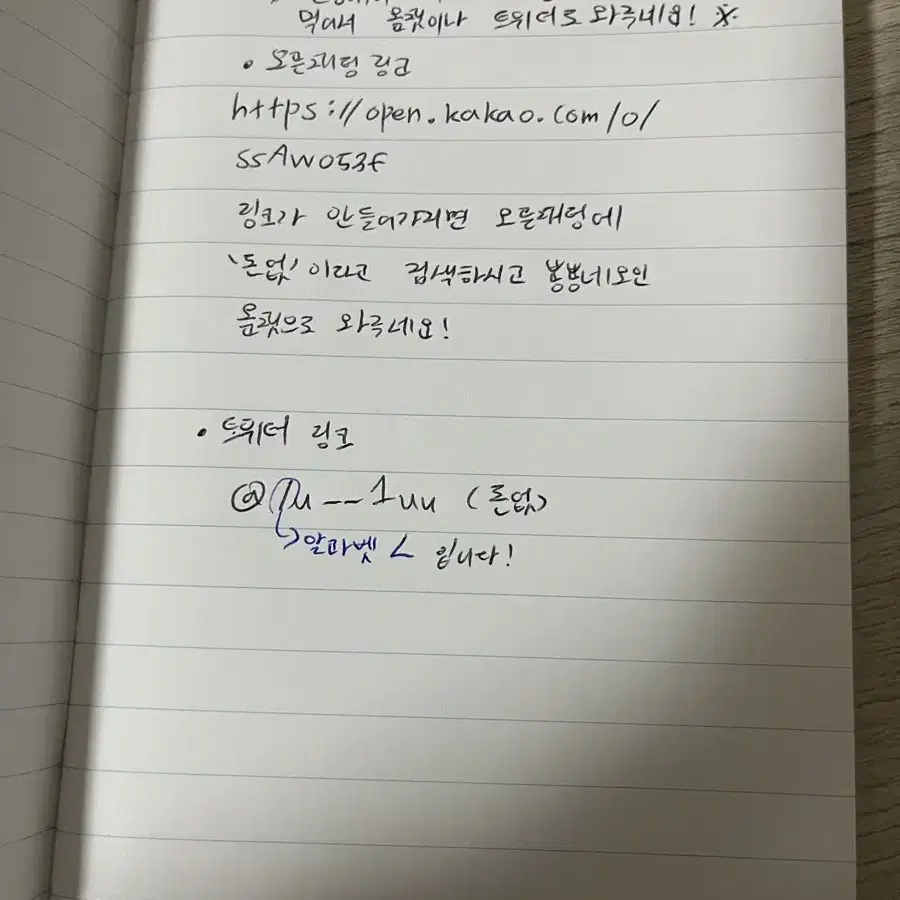 먹어서 옵챗이나 트위터로 와주세요! ※
• 오픈채팅 링크
https://open.kakao.com/o/
ssAwO53f
링크가 안들어가지면 오픈채팅에
'돈없'이라고 검색하시고 뿅뿅네모인
옵챗으로 와주세요!
• 트위터 링크
@lu__1uu (돈없)
→알파벳 L 입니다!